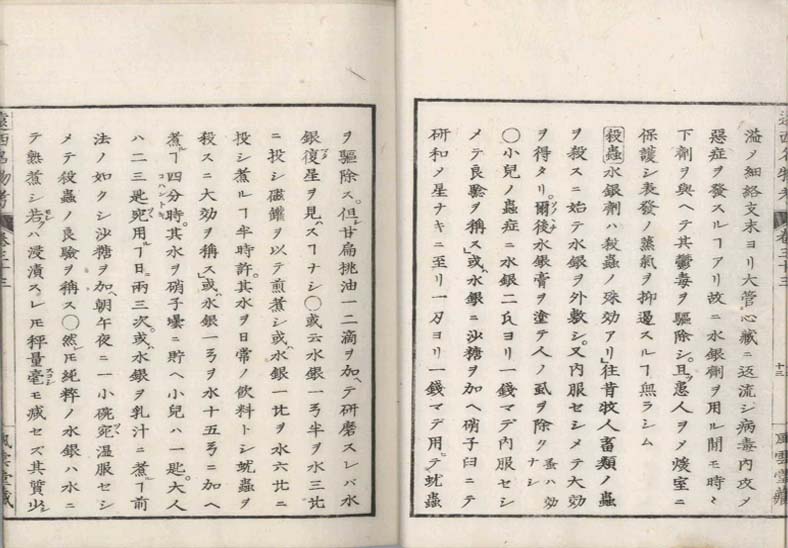 溢メ細絡文末ヨリ大管心藏ニ返流シ病毒内攻メ
惡症ヲ發スルヿアリ故ニ水銀劑ヲ用ル間モ時々
下劑ヲ與ヘテ其鬱毒ヲ驅除シ。且ツ患人ヲメ煖室ニ
保護シ表發ノ蒸氣ヲ抑遏スルヿ無ラシム
殺蟲 水銀劑ハ殺蟲ノ殊効アリ」往昔牧人畜類ノ蟲
ヲ殺スニ始テ水銀ヲ外敷シ。又内服セシメテ大効
ヲ得タリ。爾後水銀膏ヲ塗テ人ノ虱ヲ除ク 蚤ハ効ナシ
〇小兒ノ蟲症ニ水銀二氏ヨリ一錢マデ内服セシ
メテ良驗ヲ稱ス」或ハ水銀ニ沙糖ヲ加ヘ硝子臼ニテ
研和メ星ナキニ至リ一刃ヨリ一錢マデ用テ蚘蟲
ヲ驅除ス。但シ甘扁挑油一二滴ヲ加ヘテ研磨スレバ水
銀復タ星ヲ見ハスヿナシ〇或云水銀一ㄢ半ヲ水三比
ニ投シ磁鑵ヲ以テ煎煮シ或ハ水銀一比ヲ水六比ニ
投シ煮ルヿ半時許。其水ヲ日常ノ飲料トシ蚘蟲ヲ
殺スニ大効ヲ稱ス」或ハ水銀一ㄢヲ水十五ㄢニ加ヘ
煮ルヿ四分時。其水ヲ硝子壜ニ貯ヘ小兒ハ一匙。大人
ハ二三匙宛用ルヿ日ニ兩三次。或ハ水銀ヲ乳汁ニ煮ルヿ前
法ノ如クシ沙糖ヲ加ヘ朝午夜ニ一小碗宛温服セシ
メテ殺蟲ノ良驗ヲ稱ス〇然レモ純粹ノ水銀ハ水ニ
テ熟煮シ若クハ浸漬スレモ秤量毫モ减セズ其質少シ
遠西名物考 卷三十三 十三 風雲堂藏